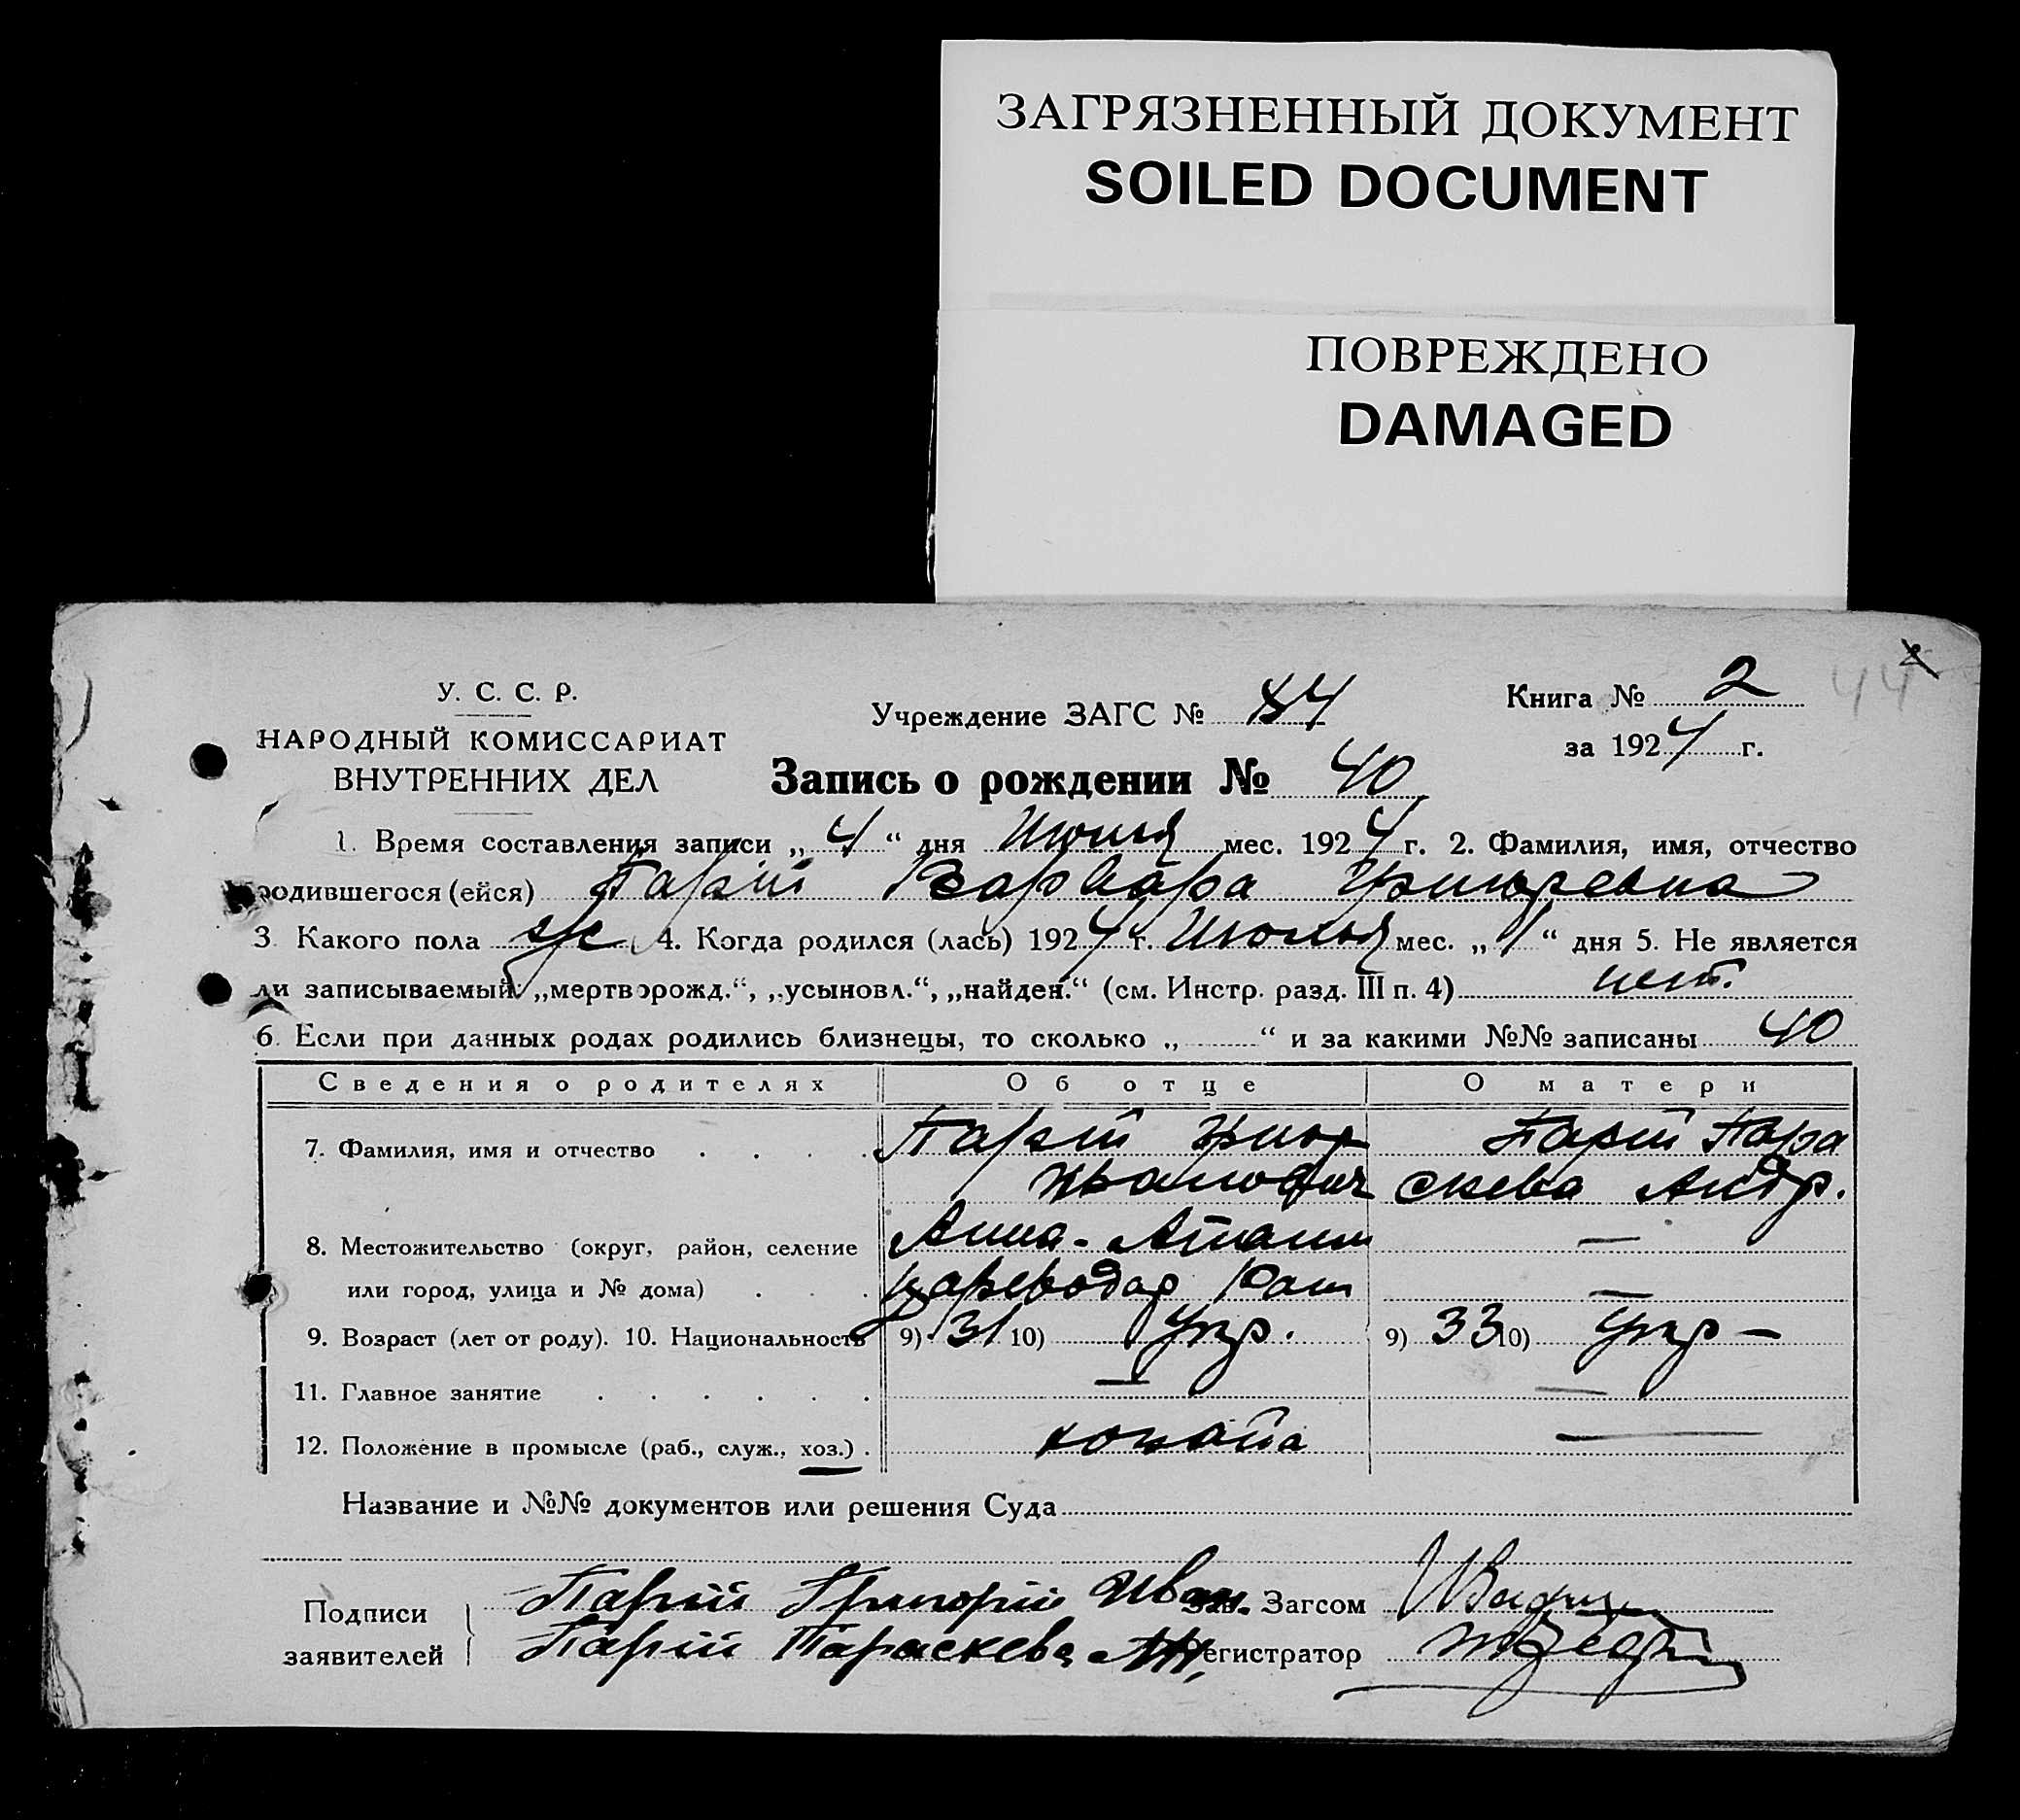 ЗАГРЯЗНЕННЫЙ ДОКУМЕНТ
SOILED DOCUMENT
ПОВРЕЖДЕНО
DAMAGED
44
У. С. С. Р.
НАРОДНЫЙ КОМИССАРИАТ
ВНУТРЕННИХ ДЕЛ
Учреждение ЗАГС №
Книга № 2
за 1924 г.
Запись о рождении № 40
1. Время составления записи „ 4 “ дня Июля мес. 1924 г. 2. Фамилия, имя, отчество
родившегося (ейся) Парій Варвара Григоревна
3. Какого пола ж 4. Когда родился (лась) 1924 г. Июля мес. „ 1 “ дня 5. Не является
ли записываемый: „мертворожд.“, „усыновл.“, „найден.“ (см. Инстр. разд. III п. 4) нет.
6. Если при данных родах родились близнецы, то сколько „ “ и за какими №№ записаны 40
Сведения о родителях Об отце О матери
7. Фамилия, имя и отчество Парій Григор Парій Пара
Иванович скева Андр.
8. Местожительство (округ, район, селение —
или город, улица и № дома) —
9. Возраст (лет от роду). 10. Национальность 9) 31 10) Укр. 9) 33 10) Укр —
11. Главное занятие — —
12. Положение в промысле (раб., служ., хоз.) —
Название и №№ документов или решения Суда
Подписи Парій Григорій Иван. Зав. Загсом
заявителей Парій Параскева Регистратор